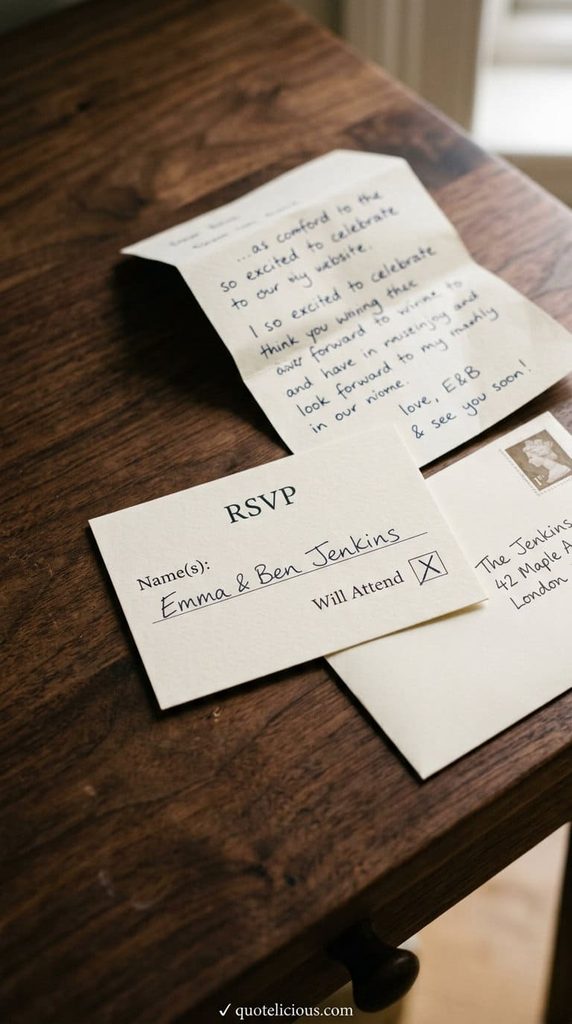 ...as comford to the
so excited to celebrate
to our my website.
I so excited to celebrate
think you wiring thee
forward to to
and have in and
look forward to my
in our
love, E&B
& see you soon!
RSVP
Name(s):
Emma & Ben Jenkins
Will Attend X
1st
The Jenkins
42 Maple A
London
✓ quotelicious.com